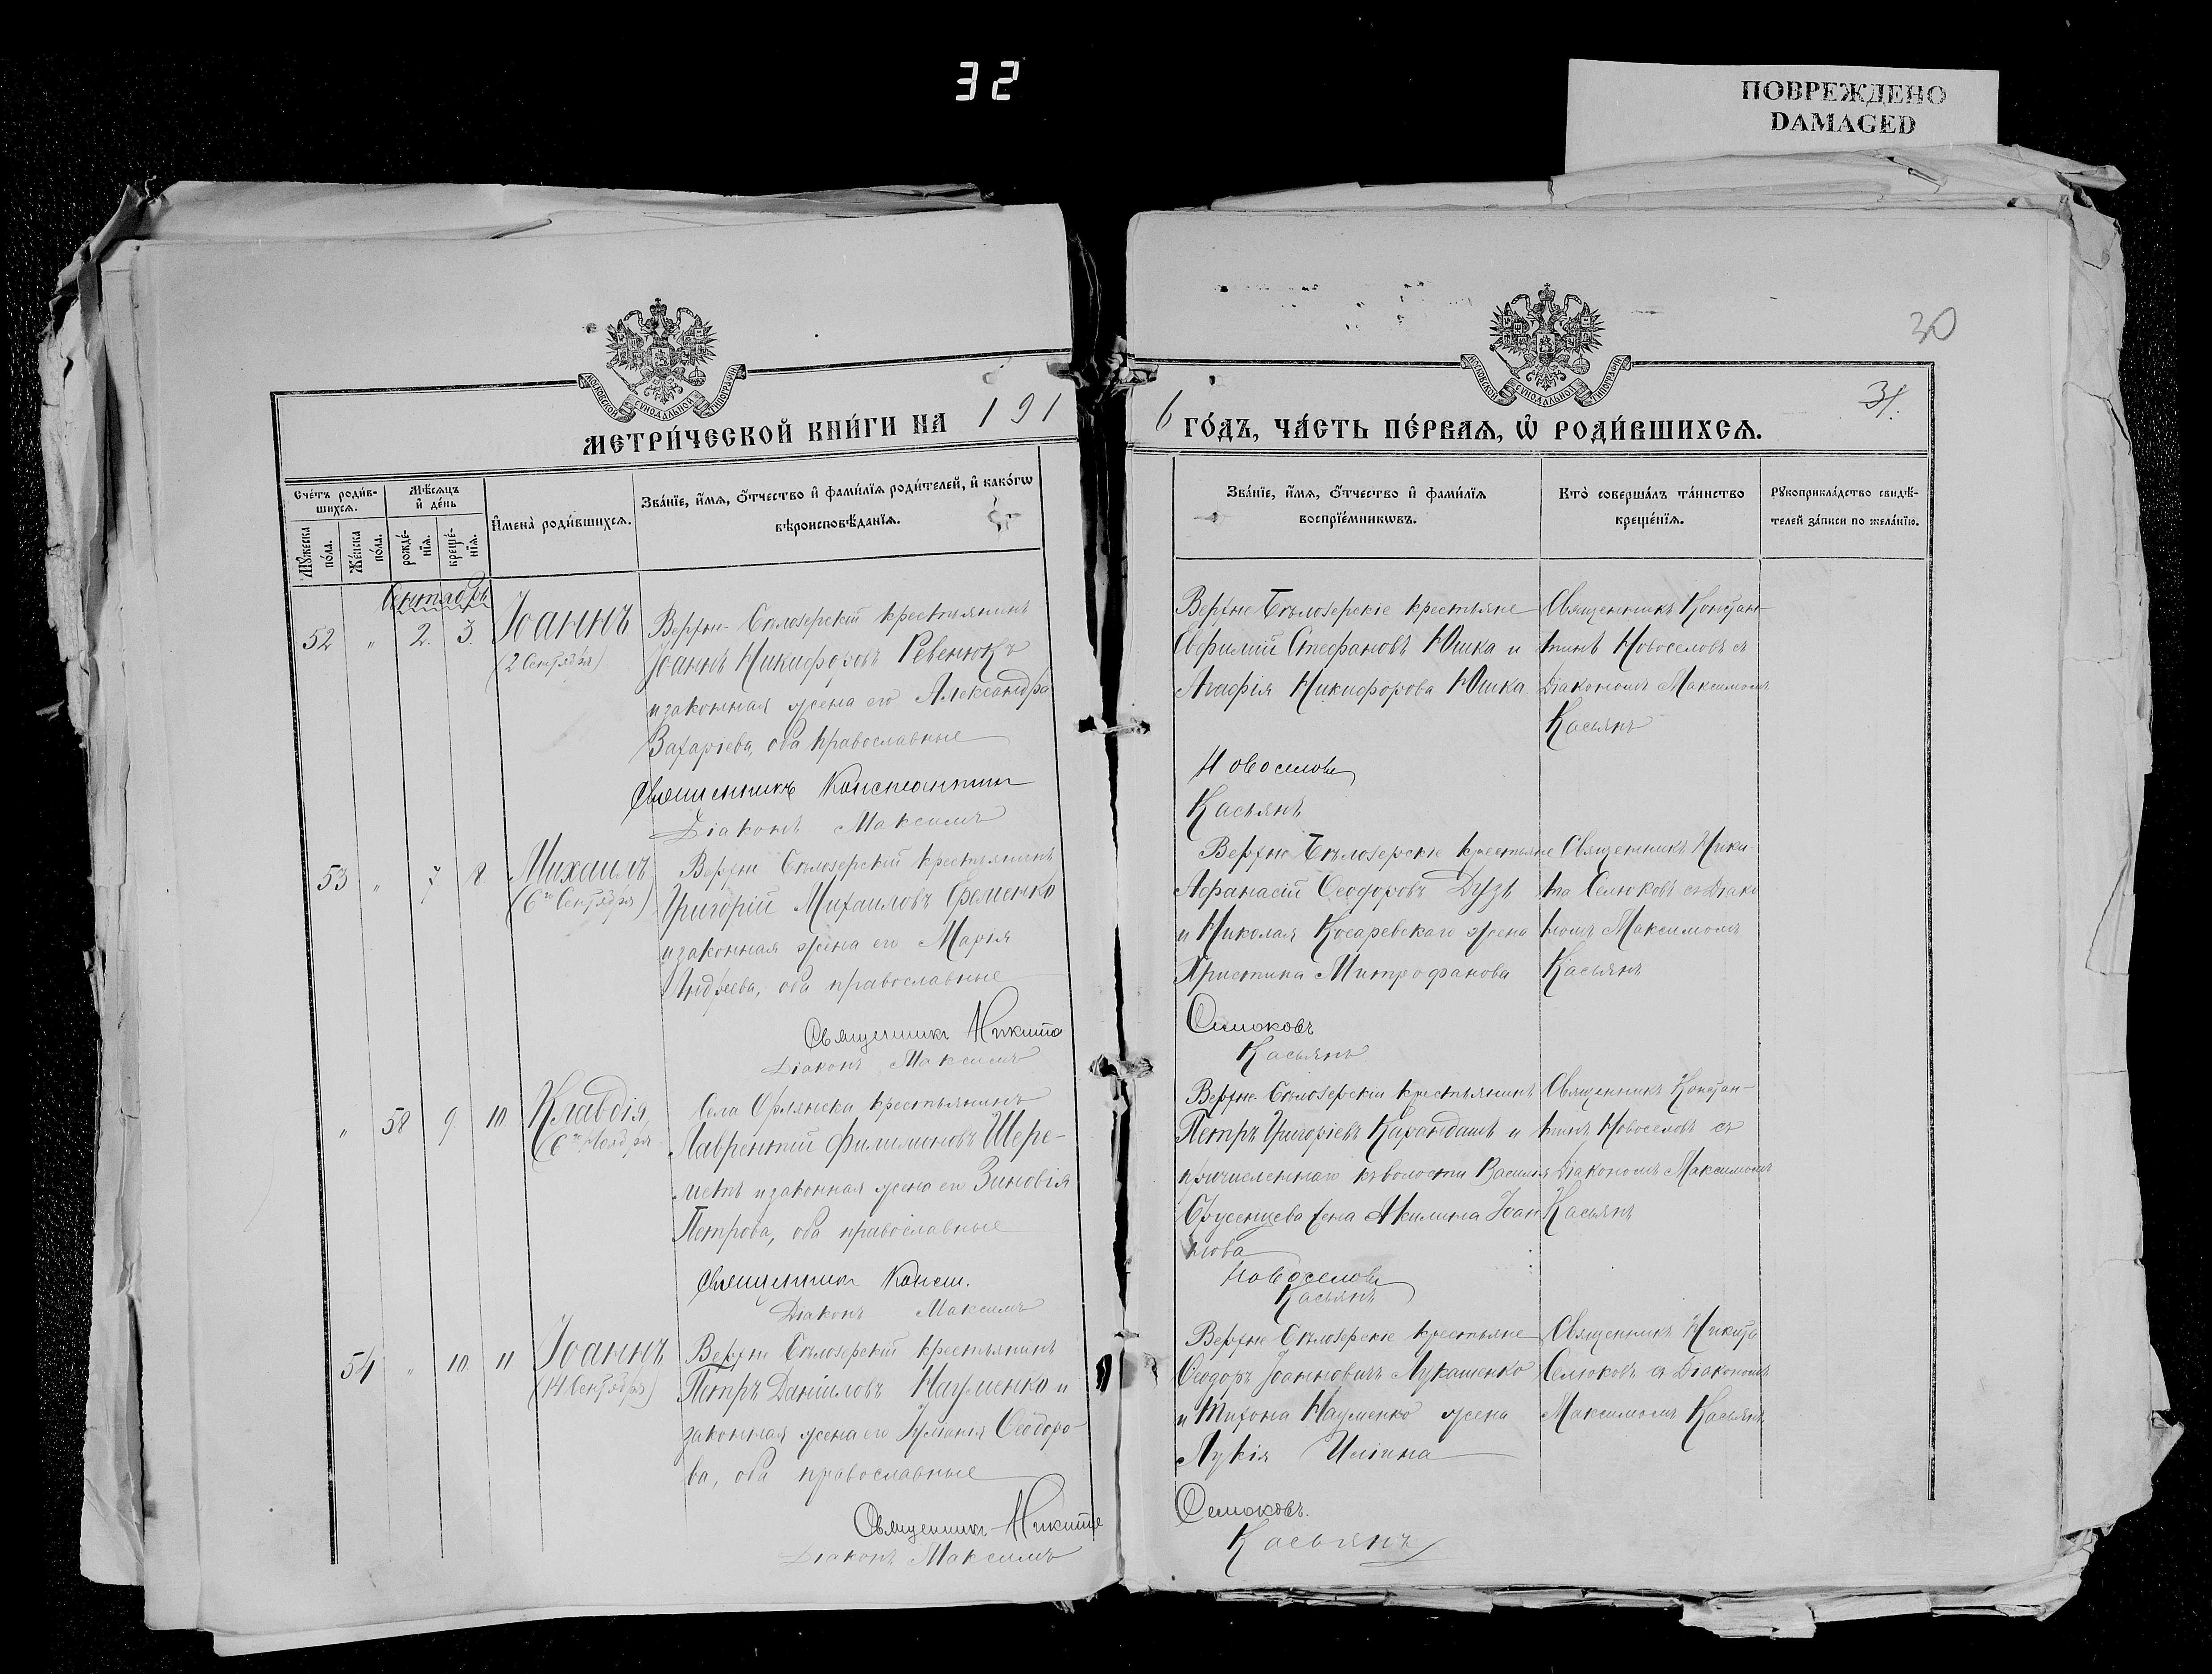 32
ПОВРЕЖДЕНО
DAMAGED
30
31.
МОСКОВСКОЙ СѴНОДАЛЬНОЙ ТИПОГРАФІИ
МОСКОВСКОЙ СѴНОДАЛЬНОЙ ТИПОГРАФІИ
МЕТРИ́ЧЕСКОЙ КНИ́ГИ НА 191
6 ГО́ДЪ, ЧА́СТЬ ПЕ́РВАЯ, Ѡ҆ РОДИ́ВШИХСѦ.
Сче́тъ роди́в-
шихсѧ.
Мꙋ́жеска
по́ла.
Же́нска
по́ла.
Мѣ́сѧцъ
и҆ де́нь
рожде́-
нїѧ.
креще́-
нїѧ.
И҆мена̀ роди́вшихсѧ.
Зва́нїе, и҆́мѧ, ѻ҆́тчество и҆ фами́лїѧ роди́телей, и҆ како́гѡ
вѣроисповѣ́данїѧ.
Зва́нїе, и҆́мѧ, ѻ҆́тчество и҆ фами́лїѧ
воспрїе́мникѡвъ.
Кто̀ соверша́лъ та́инство
креще́нїѧ.
Рꙋкоприкла́дство свидѣ́-
телей за́писи по жела́нїю.
Сентябрь
52 " 2. 3.
Іоаннъ
(2 Сентября)
Верхне-Бѣлозерскій крестьянинъ
Іоаннъ Никифоровъ Ревенюкъ
и законная жена его Александра
Захаріева, оба православные
Священникъ Константин
Діаконъ Максимъ
Верхне Бѣлозерскіе крестьяне
Евфимій Стефановъ Юшка и
Агафія Никифорова Юшка
Новоселовъ
Касьянъ
Священникъ Констан-
тинъ Новоселовъ съ
Діакономъ Максимомъ
Касьянъ
53 " 7 8
Михаилъ
(6го Сентября)
Верхне Бѣлозерскій крестьянинъ
Григорій Михаиловъ Фоменко
и законная жена его Марія
Андреева, оба православные
Священникъ Никита
Діаконъ Максимъ
Верхне Бѣлозерскіе крестьяне
Афанасій Ѳеодоровъ Дузь
и Николая Косаревскаго жена
Христина Митрофанова
Селюковъ
Касьянъ
Священникъ Ники-
та Селюковъ съ Діако
номъ Максимомъ
Касьянъ
" 58 9 10
Клавдія,
Села Орлянска крестьянинъ
Лаврентій Филимоновъ Шере-
метъ и законная жена его Зиновія
Петрова, оба православные
Священник Конст.
Діаконъ Максимъ
Верхне-Бѣлозерскій крестьянинъ
Петръ Григоріевъ Карандашъ и
причисленнаго къ волости Василія
жена Акилина Іоан
нова
Новоселовъ
Касьянъ
Священникъ Констан-
тинъ Новоселовъ съ
Діакономъ Максимомъ
Касьянъ
54 " 10 11
Іоаннъ
(14 Сентября)
Верхне Бѣлозерскій крестьянинъ
Петръ Даніиловъ Науменко и
законная жена его Іуліанія Ѳеодоро-
ва, оба православные
Священникъ Никита
Діаконъ Максимъ
Верхне Бѣлозерскіе крестьяне
Ѳеодоръ Іоанновичъ Лукашенко
и Тихона Науменко жена
Лукія Иліина
Селюковъ.
Касьянъ
Священникъ Никита
Селюковъ съ Діакономъ
Максимомъ Касьянъ